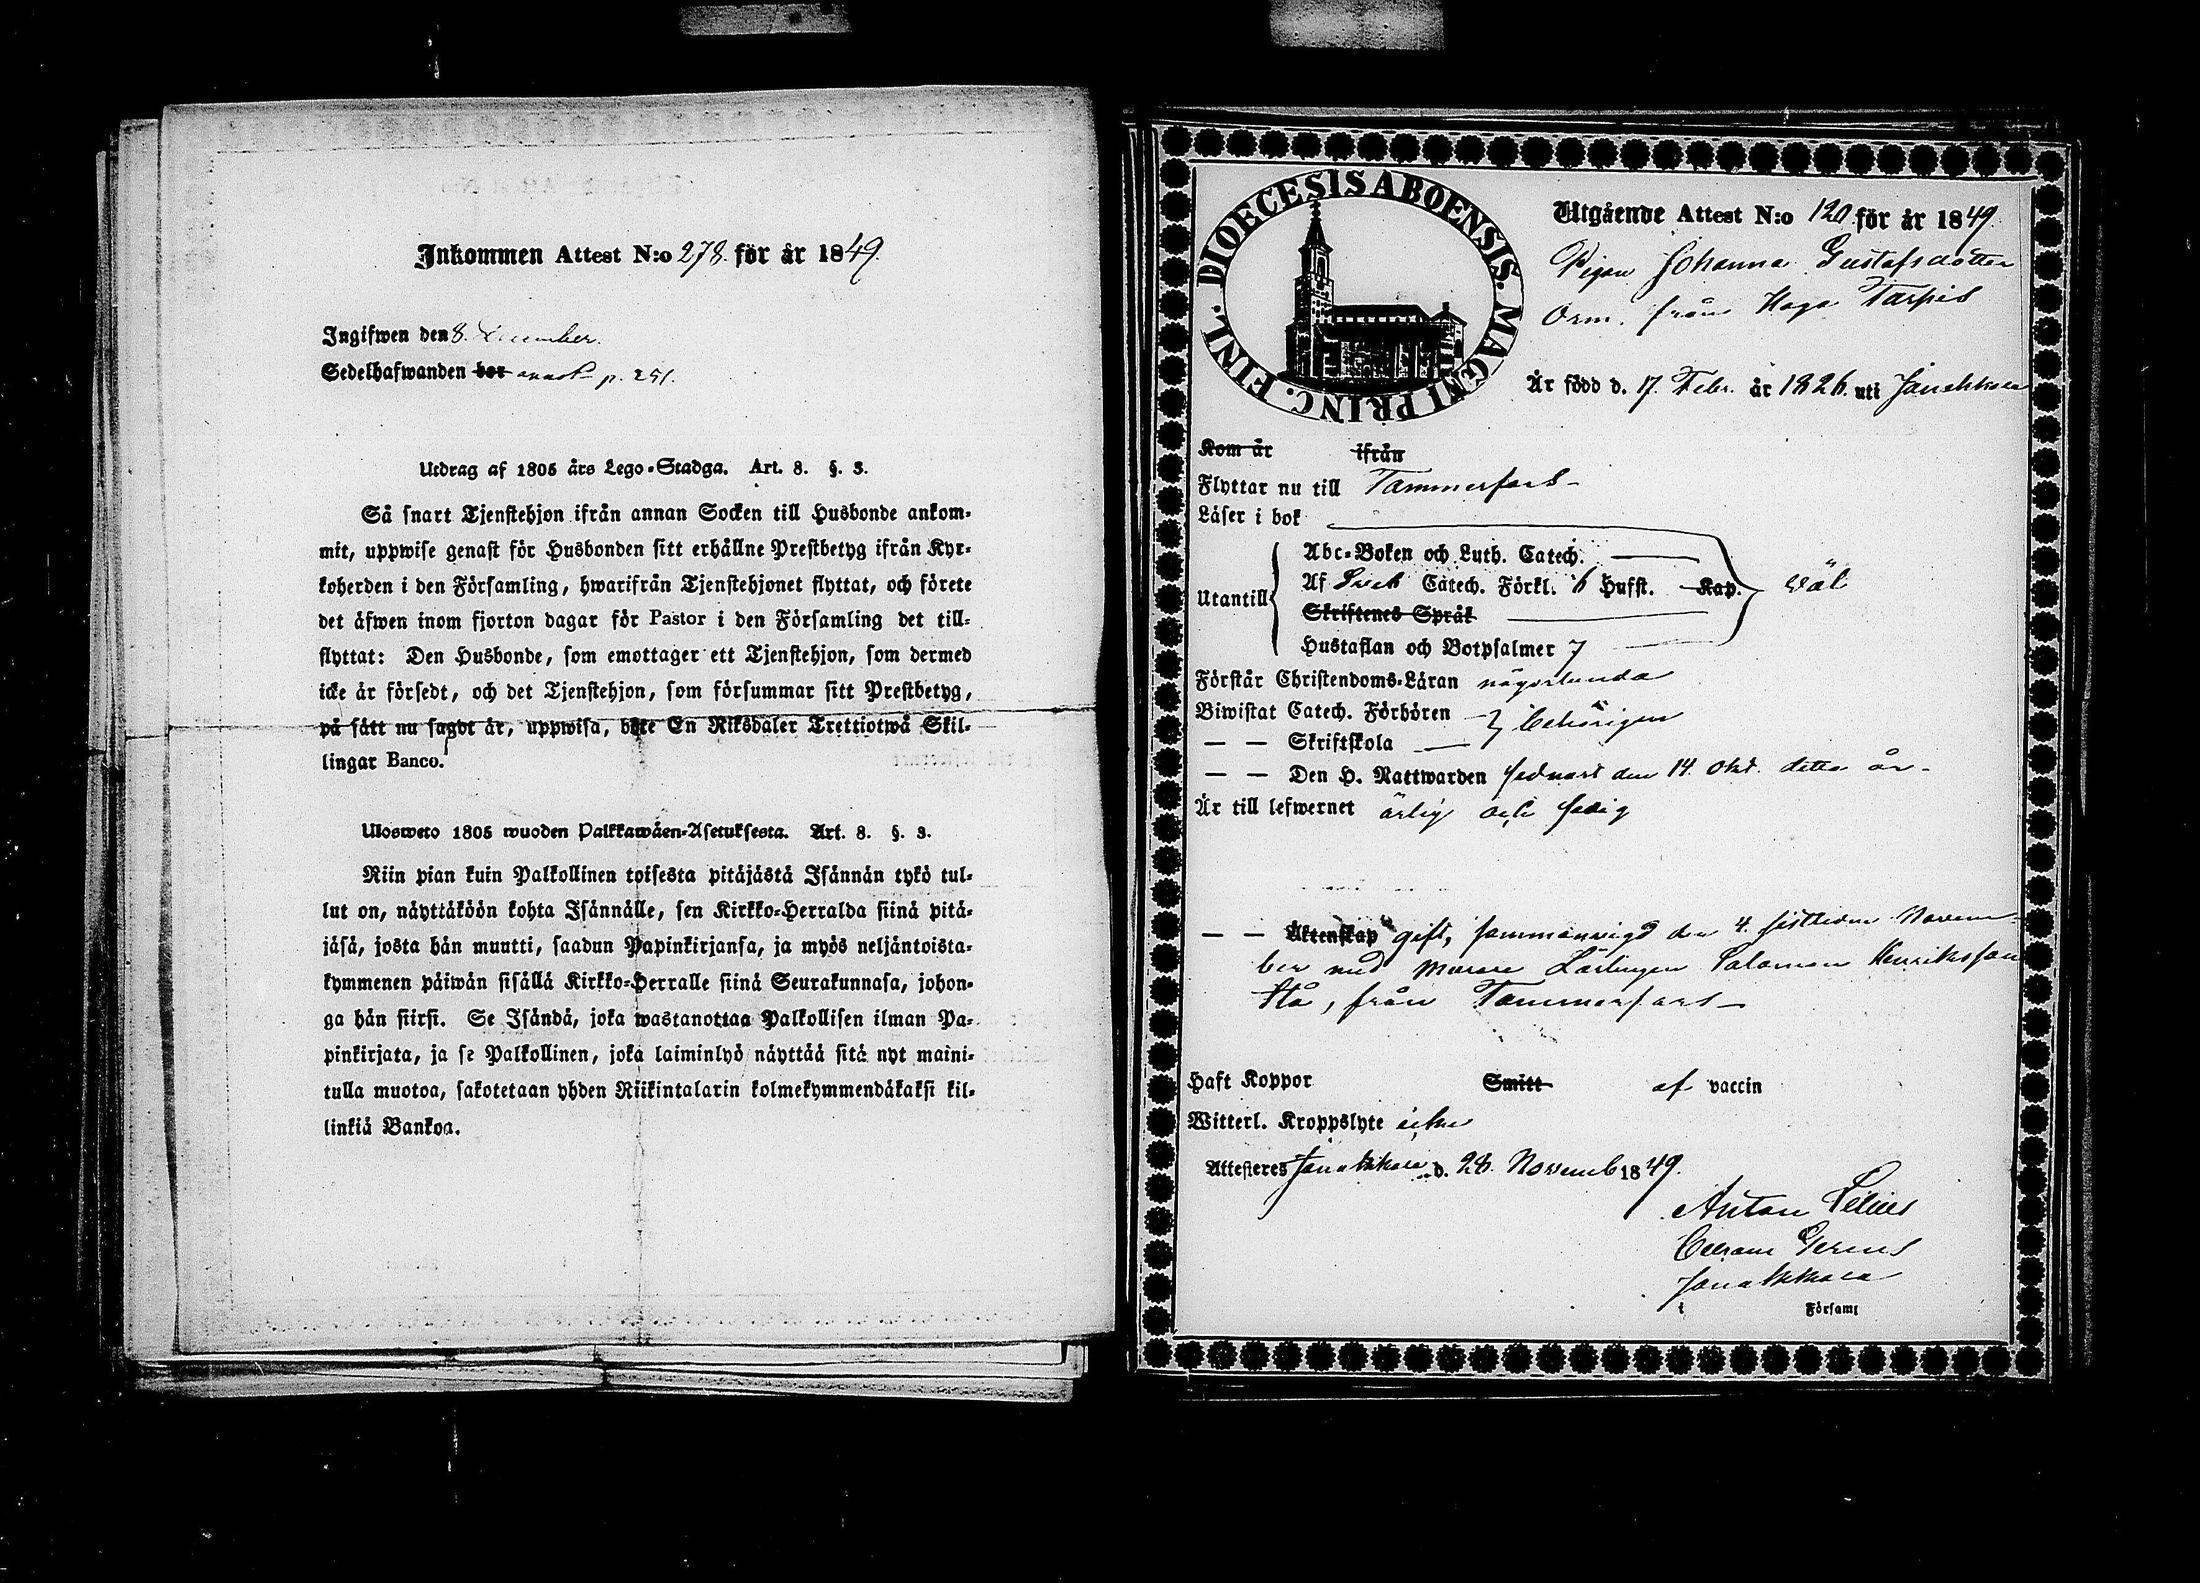 Inkommen Attest N:o 278. för år 1849.
Ingifwen den 8. December.
Sedelhafwanden bor p. 251.
Utdrag af 1805 års Lego-Stadga. Art. 8. §. 3.
Så snart Tjenstehjon ifrån annan Socken till Husbonde ankom-
mit, uppwise genast för Husbonden sitt erhållne Prestbetyg ifrån Kyr-
koherden i den Församling, hwarifrån Tjenstehjonet flyttat, och förete
det äfwen inom fjorton dagar för Pastor i den Församling det till-
flyttat: Den Husbonde, som emottager ett Tjenstehjon, som dermed
icke är försedt, och det Tjenstehjon, som försummar sitt Prestbetyg,
på sätt nu sagdt är, uppwisa, böte En Riksdaler Trettiotwå Skil-
lingar Banco.
Ulosweto 1805 wuoden Palkkawäen-Asetuksesta. Art. 8. §. 3.
Niin pian kuin Palkollinen toisesta pitäjästä Isännän tykö tul-
lut on, näyttäköön kohta Isännälle, sen Kirkko-Herralda siinä pitä-
jäsä, josta hän muutti, saadun Papinkirjansa, ja myös neljäntoista-
kymmenen päiwän sisällä Kirkko-Herralle siinä Seurakunnasa, johon-
ga hän siirsi. Se Isändä, joka wastanottaa Palkollisen ilman Pa-
pinkirjata, ja se Palkollinen, joka laiminlyö näyttää sitä nyt maini-
tulla muotoa, sakotetaan yhden Riikintalarin kolmekymmendäkaksi kil-
linkiä Bankoa.
DIOECESIS ABOENSIS. MAGNI PRINC. FINL.
Utgående Attest N:o 120 för år 1849.
Pigan Johanna Gustafsdotter
Orm. från Haga Tarpis
Är född d. 17. Febr. år 1826. uti Janakkala
Kom år ifrån
Flyttar nu till Tammerfors
Läser i bok
Abc-Boken och Luth. Catech.
Utantill Af Sveb Catech. Förkl. 6 Hufst. Kap. väl
Skriftenes Språk
Hustaflan och Botpsalmer 7
Förstår Christendoms-Läran någorlunda
Biwistat Catech. Förhören behörigen
— — Skriftskola
— — Den H. Nattwarden sednast den 14. Okt. detta år.
Är till lefwernet ärlig och sedig
— — Äktenskap gift, sammanvigd den 4. sistledne Novem-
ber med Murare Lärlingen Salomon Henriksson
Stå, från Tammerfors
Haft Koppor Smitt af vaccin
Witterl. Kroppslyte icke
Attesteres Janakkala d. 28. Novemb 1849.
Anton
Janakkala
i Församl